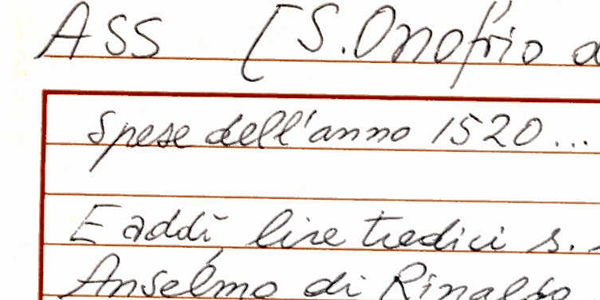 ASS [S. Onofrio a
Spese dell'anno 1520...
E addì, lire tredici s.
Anselmo di Rinaldo